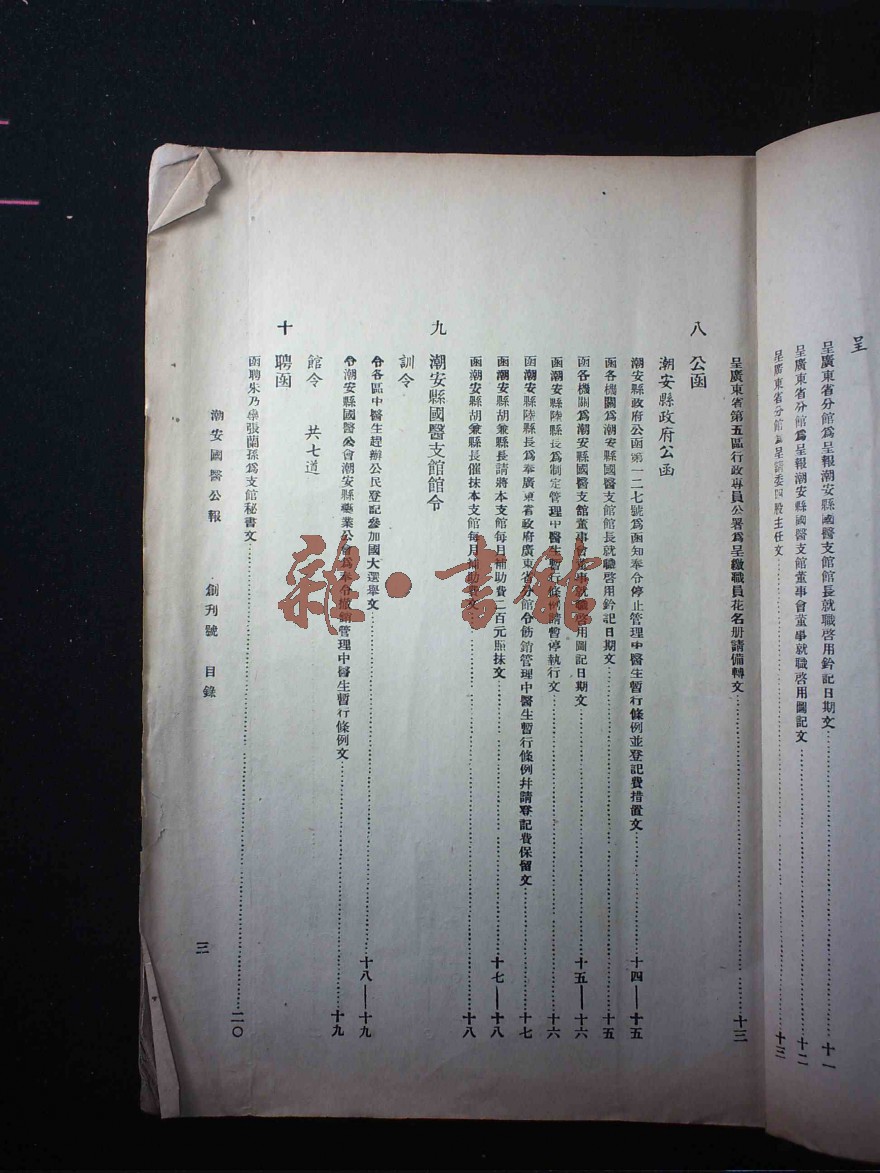 呈
呈廣東省分館爲呈報潮安縣國醫支館館長就職啓用鈐記日期文……十一
呈廣東省分館爲呈報潮安縣國醫支館董事會董事就職啓用圖記文……十二
呈廣東省分館爲呈請委四股主任文……十三
呈廣東省第五區行政專員公署爲呈繳職員花名册請備轉文……十三
八 公函
潮安縣政府公函
潮安縣政府公函第一二七號爲函知奉令停止管理中醫生暫行條例並登記費措置文……十四—十五
函各機關爲潮安縣國醫支館館長就職啓用鈐記日期文……十五
函各機關爲潮安縣國醫支館董事會董事就職啓用圖記日期文……十五—十六
函潮安縣陸縣長爲制定管理中醫生暫行條例請暫停執行文……十六
函潮安縣陸縣長爲奉廣東省政府廣東省分館令飭銷管理中醫生暫行條例幷請登記費保留文……十七
函潮安縣胡兼縣長請將本支館每月補助費二百元賜抹文……十七—十八
函潮安縣胡兼縣長催抹本支館每月補助費文……十八
九 潮安縣國醫支館館令
訓令
令各區中醫生趕辦公民登記參加國大選舉文……十八—十九
令潮安縣國醫公會潮安縣藥業公會爲奉令撤銷管理中醫生暫行條例文……十九
館令 共七道
十 聘函
函聘朱乃張蘭孫爲支館秘書文……二〇
潮安國醫公報 創刊號 目錄
三
雜·書館